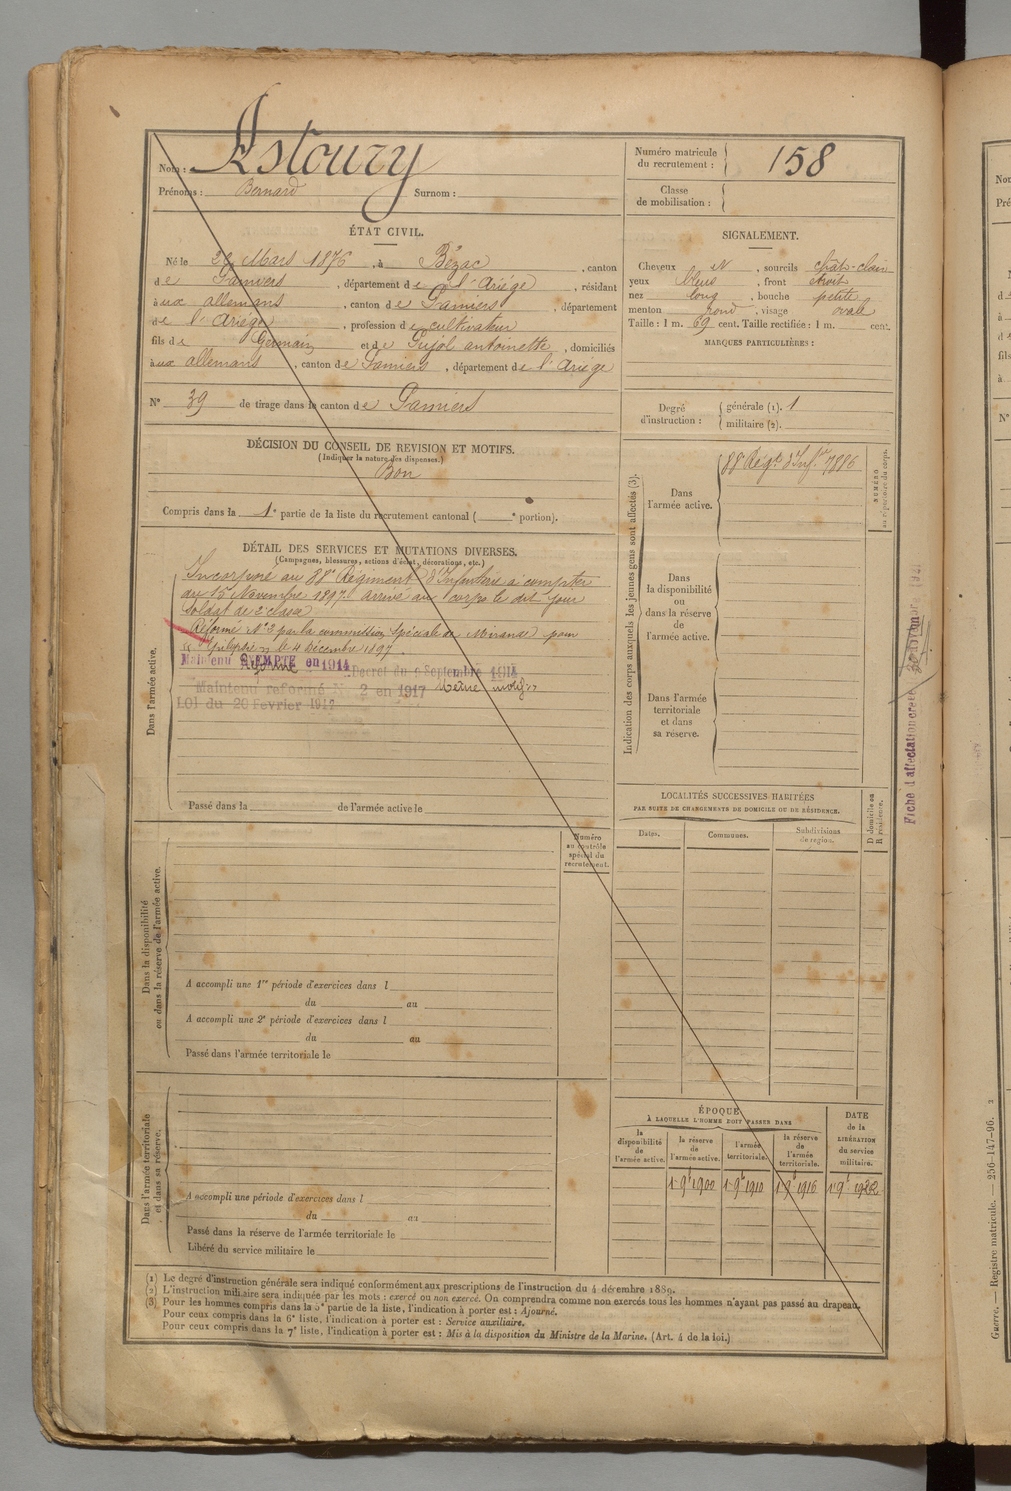 Nom : Astoury
Prénoms : Bernard Surnom :
Numéro matricule du recrutement : 158
Classe de mobilisation :
ÉTAT CIVIL.
Né le Mars 1876, à Bézac, canton
de Pamiers, département de l'Ariège, résidant
à aux allemans, canton de Pamiers, département
de l'Ariège, profession de cultivateur
fils de Germain et de Pujol antoinette, domiciliés
à aux allemans, canton de Pamiers, département de l'Ariège
N° 39 de tirage dans le canton de Pamiers
SIGNALEMENT.
Cheveux N, sourcils chât-clair
yeux bleus, front étroit
nez long, bouche petite
menton rond, visage ovale
Taille : 1 m. 69 cent. Taille rectifiée : 1 m. cent.
MARQUES PARTICULIÈRES :
Degré d'instruction : générale (1). 1
militaire (2).
DÉCISION DU CONSEIL DE REVISION ET MOTIFS.
(Indiquer la nature des dispenses.)
Bon
Compris dans la 1e partie de la liste du recrutement cantonal ( e portion).
DÉTAIL DES SERVICES ET MUTATIONS DIVERSES.
(Campagnes, blessures, actions d'éclat, décorations, etc.)
Dans l'armée active.
Incorporé au 88e Régiment d'Infanterie à compter
du 15 Novembre 1897. Arrivé au corps le dit jour
Soldat de 2e classe
Réformé N° 2 par la commission spéciale de Mirande pour
"Épilepsie" le 4 Décembre 1897.
Maintenu EXEMPTÉ en 1914 Décret du 9 Septembre 1914
Réformé
Maintenu reformé N° 2 en 1917 Même motif
LOI du 20 Fevrier 1917
Passé dans la de l'armée active le
Indication des corps auxquels les jeunes gens sont affectés (3).
Dans l'armée active.
88e Régt d'Infie 7886
NUMÉRO au répertoire du corps.
Dans la disponibilité ou dans la réserve de l'armée active.
Dans l'armée territoriale et dans sa réserve.
Fiche d'affectation créée
LOCALITÉS SUCCESSIVES HABITÉES
PAR SUITE DE CHANGEMENTS DE DOMICILE OU DE RÉSIDENCE.
Dates. Communes. Subdivisions de région.
D domicile ou R résidence.
Numéro au contrôle spécial du recrutement.
Dans la disponibilité ou dans la réserve de l'armée active.
A accompli une 1re période d'exercices dans l
du au
A accompli une 2e période d'exercices dans l
du au
Passé dans l'armée territoriale le
Dans l'armée territoriale et dans sa réserve.
A accompli une période d'exercices dans l
du au
Passé dans la réserve de l'armée territoriale le
Libéré du service militaire le
ÉPOQUE
À LAQUELLE L'HOMME DOIT PASSER DANS
la disponibilité de l'armée active.
la réserve de l'armée active.
l'armée territoriale.
la réserve de l'armée territoriale.
DATE de la LIBÉRATION du service militaire.
1 9e 1900 1 9e 1910 1 9e 1916 1 9e 1922
(1) Le degré d'instruction générale sera indiqué conformément aux prescriptions de l'instruction du 4 décembre 1889.
(2) L'instruction militaire sera indiquée par les mots : exercé ou non exercé. On comprendra comme non exercés tous les hommes n'ayant pas passé au drapeau.
(3) Pour les hommes compris dans la 5e partie de la liste, l'indication à porter est : Ajourné.
Pour ceux compris dans la 6e liste, l'indication à porter est : Service auxiliaire.
Pour ceux compris dans la 7e liste, l'indication à porter est : Mis à la disposition du Ministre de la Marine. (Art. 4 de la loi.)
Guerre. — Registre matricule. — 256-147-96. 2